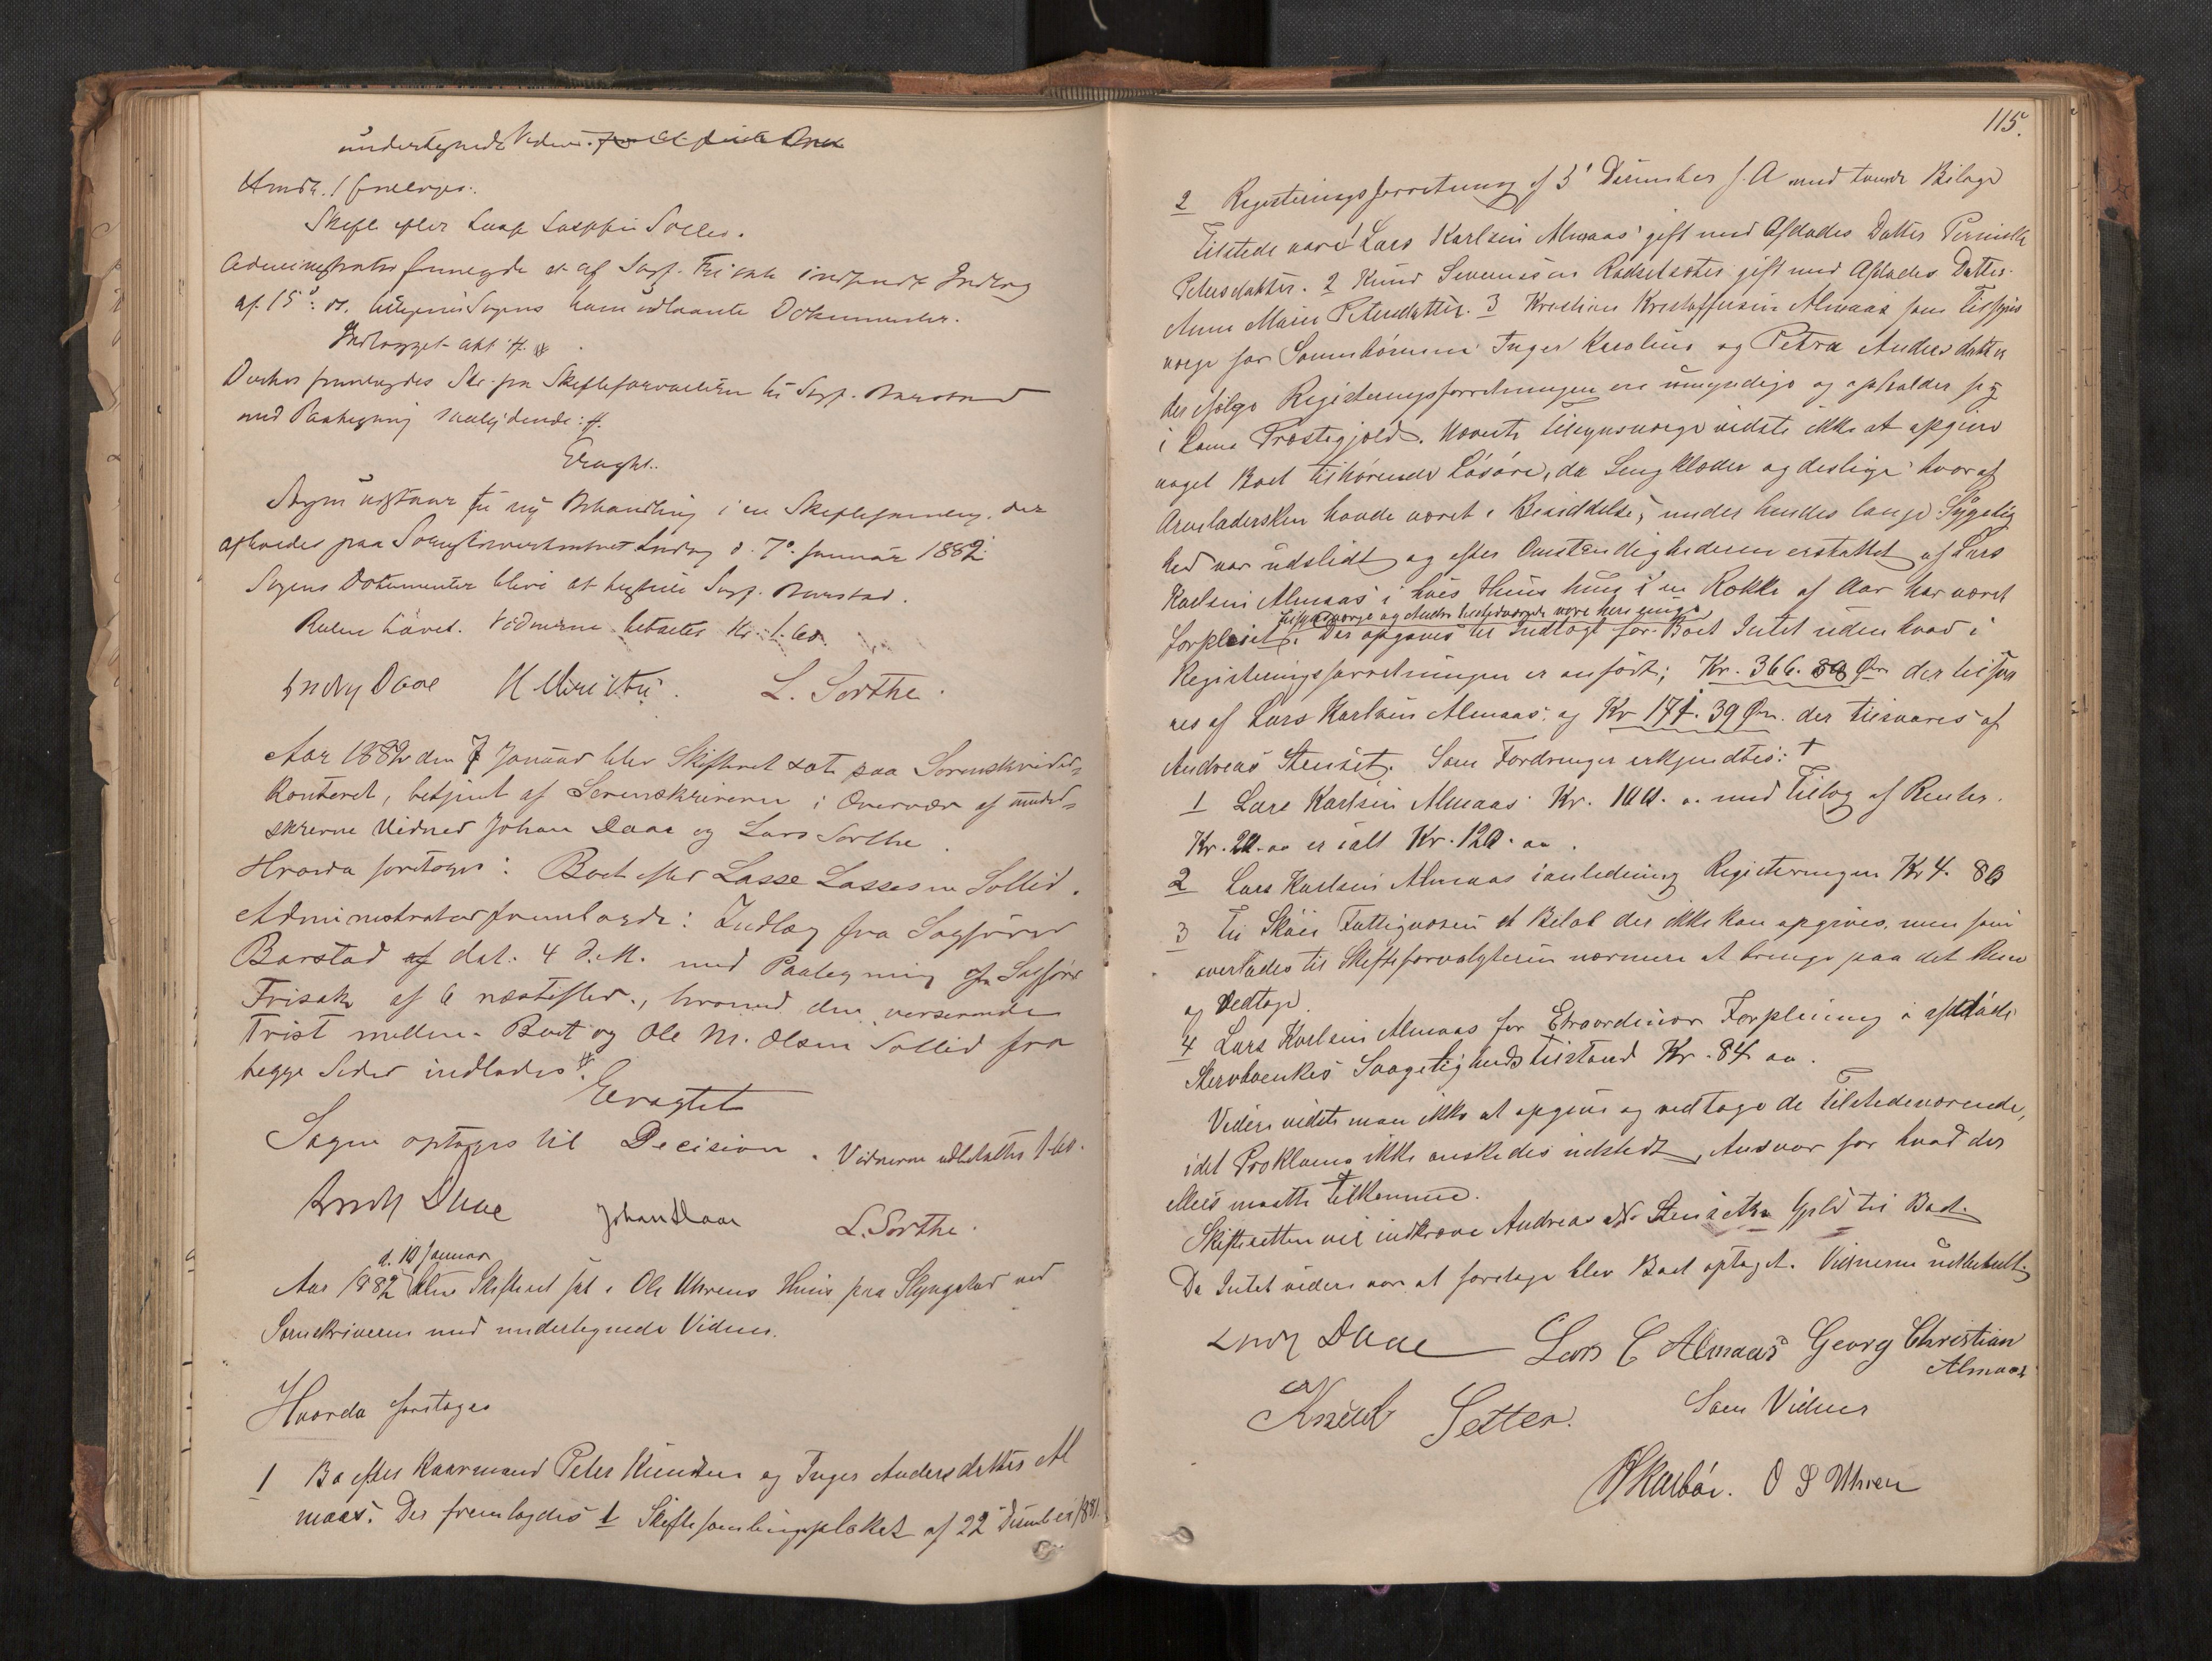 undertegnede Vidner.
Skifte efter Lasse Lassesen Sollid.
Administrator fremlagde et af Sagf. Frisak indsendt Indlæg
af 15 ds. tilligemed Sagens ham udlaante Dokumenter.
Indlægget akt #.
Derhos fremlagdes Skr. fra Skifteforvalteren til Sagf. Barstad
med Paategning saalydende: #.
Eragtet.
Sagen udstaar til ny Behandling i en Skiftesamling, der
afholdes paa Sorenskriverkontoret Lørdag d. 7de Januar 1882.
Sagens Dokumenter blive at tilstille Sagf. Barstad.
Retten hævet. Vidnerne betaltes Kr. 1.60.
Ludv Daae L. Sorthe.
Aar 1882 den 7 Januar blev Skifteret sat paa Sorenskriver-
kontoret, betjent af Sorenskriveren i Overvær af under-
skrevne Vidner Johan Daae og Lars Sorthe.
Hvorda foretoges: Boet efter Lasse Lassesen Sollid.
Administrator fremlagde: Indlæg fra Sagfører
Barstad af dat. 4 d.M. med Paategning fra Sagfører
Frisak af 6 næstefter., hvorved den verserende
Trist mellem Boet og Ole M. Olsen Sollid fra
begge Sider indlades #.
Eragtet
Sagen optages til Decision. Vidnerne udbetaltes 1.60.
Ludv Daae Johan Daae L. Sorthe.
d. 10 Januar
Aar 1882 blev Skifteret sat i Ole Uhrens Huus paa Slyngstad ved
Sorenskriveren med undertegnede Vidner.
Hvorda foretages
1 Bo efter Kaarmand Peter Knudsen og Inger Andersdatter Al
maas. Der fremlagdes 1 Skiftesamlingsplakat af 22 December 1881.
115.
2 Registeringsforretning af 3 December s. A med tvende Bilage
Tilstede vare 1 Lars Karlsen Almaas gift med Afdødes Datter Pernille
Petersdatter. 2 Knud Severinsen gift med Afdødes Datter
Anne Marie Petersdatter. 3 Kristian Kristoffersen Almaas som Tilsyns
værge for Sønnebørnene Inger Karoline og Petra Andersdatter
der ifølge Registeringsforretningen ere umyndige og opholder sig
i Lama Præstegjeld. Nævnte Tilsynsværge vidste ikke at opgive
noget Boet tilhørende Løsøre, da Sengklæder og deslige hvoraf
Arveladersken havde været i Besiddelse, under hendes lange Sygelig
hed var udslidt og efter Omstændighederne erstattet af Lars
Karlsen Almaas i hvis Huus hun i en Række af Aar har været
Tilsynsværge og Andre tilstedeværende vare heri enige
forpleiet. Der opgaves til Indtægt for Boet Intet uden hvad i
Registeringsforretningen er anført; Kr. 366. 80 Øre der tilsva
res af Lars Karlsen Almaas, og Kr 171. 39 Øre. der tilsvares af
Andreas Stenset. Som Fordringer erkjendtes: †
1 Lars Karlsen Almaas Kr. 100. ,, med Tillæg af Renter
Kr. 20.00 er ialt Kr. 120.00.
2 Lars Karlsen Almaas ianledning Registeringen Kr 4. 80
3 Til Skåü Fattigvæsen et Beløb der ikke kan opgives, men som
overlades til Skifteforvalteren nærmere at bringe paa det Rene
og Vedtage.
4 Lars Karlsen Almaas for Extraordinær Forpleining i afdøde
Stervboenkes Svagelighedstilstand Kr. 84 00.
Videre vidste man ikke at opgive og vedtage de Tilstedeværende,
idet Proklama ikke ønskedes udstedt, Ansvar for hvad der
ellers maatte tilkomme.
Skifteretten vil indkræve Andreas Stensets Gjeld til Boet.
Da Intet videre var at foretage blev Boet optaget. Vidnerne udbetalt.
Ludv Daae Lars C Almaas Georg Christian
Almaas
Knud Setter. Som Vidner
O S Uhren